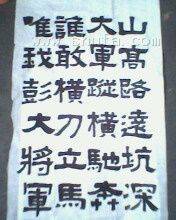 山高路遠坑深
大軍蹤橫馳奔
誰敢橫刀立馬
唯我彭大將軍